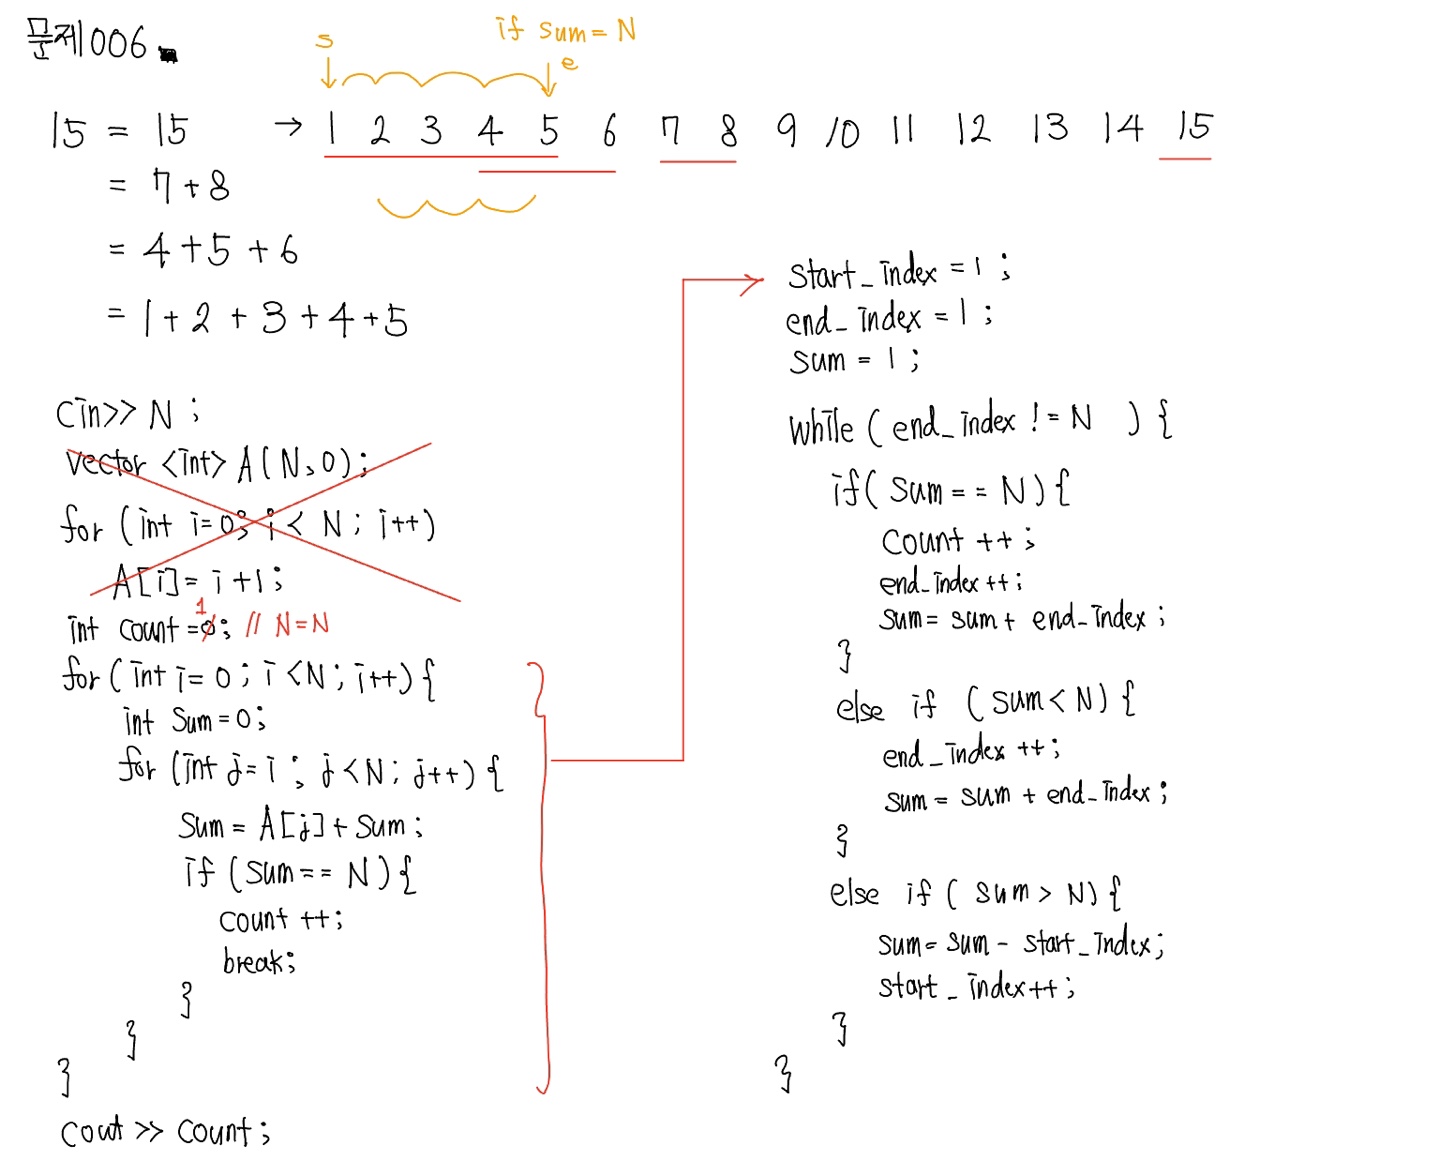 문제006.
s
if sum = N
e
15 = 15 → 1 2 3 4 5 6 7 8 9 10 11 12 13 14 15
= 7 + 8
= 4 + 5 + 6
= 1 + 2 + 3 + 4 + 5
cin>> N ;
vector <int> A(N,0);
for (int i=0; i < N ; i++)
A[i] = i +1 ;
int count = 0; 1 // N=N
for ( int i= 0 ; i <N ; i++) {
int Sum = 0;
for (int j= i ; j <N ; j++) {
Sum = A[j] + Sum ;
if ( sum == N ) {
count ++;
break;
}
}
}
cout >> count ;
start_index = 1 ;
end_index = 1 ;
sum = 1 ;
while ( end_index != N ) {
if( sum == N ) {
count ++ ;
end_index ++ ;
sum = sum + end_index ;
}
else if ( sum < N ) {
end_index ++ ;
sum = sum + end_index ;
}
else if ( sum > N) {
sum = sum - start_index ;
start_index++ ;
}
}